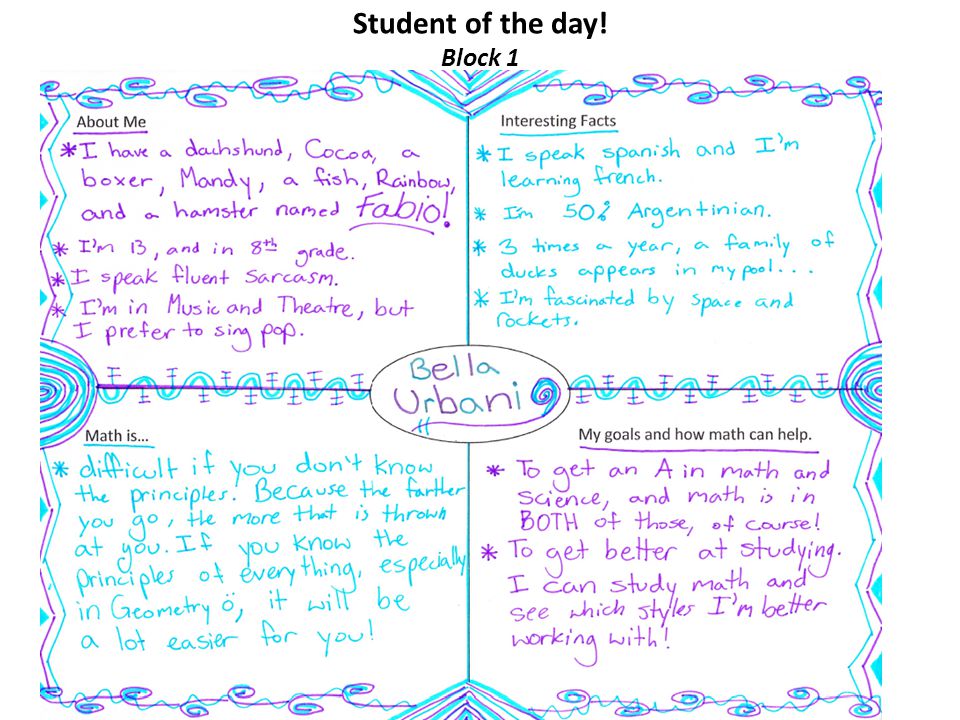 Student of the day!
Block 1
About Me
* I have a dachshund, Cocoa, a
boxer, Mandy, a fish, Rainbow,
and a hamster named Fabio!
* I'm 13, and in 8th grade.
* I speak fluent sarcasm.
* I'm in Music and Theatre, but
I prefer to sing pop.
Interesting Facts
* I speak spanish and I'm
learning french.
* I'm 50% Argentinian.
* 3 times a year, a family of
ducks appears in my pool...
* I'm fascinated by space and
rockets.
Bella
Urbani
Math is...
* difficult if you don't know
the principles. Because the farther
you go, the more that is thrown
at you. If you know the
principles of everything, especially
in Geometry ö, it will be
a lot easier for you!
My goals and how math can help.
* To get an A in math and
science, and math is in
BOTH of those, of course!
* To get better at studying.
I can study math and
see which styles I'm better
working with!